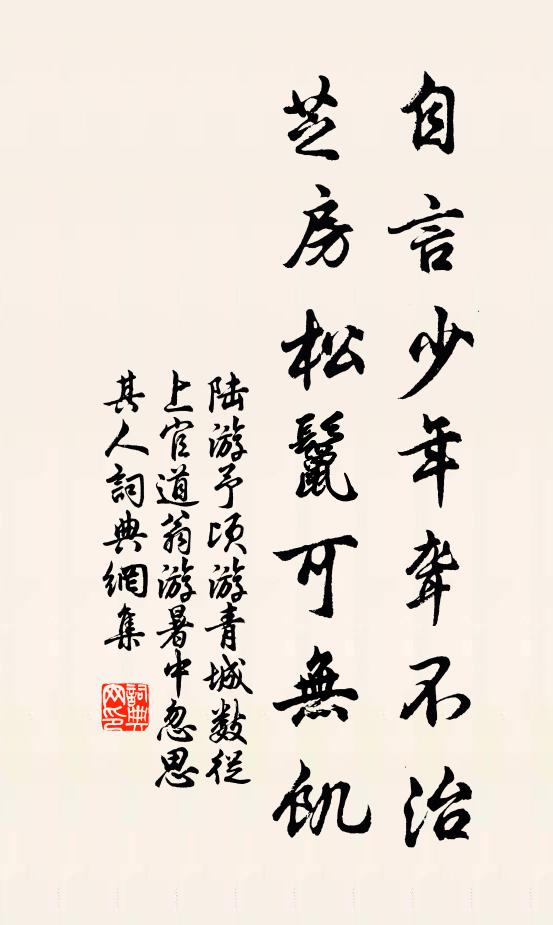 自言少年聾不治
芝房松鬣可無飢
陆游予頃游青城数從
上官道翁游暑中忽思
其人詞典網集
詞典网印